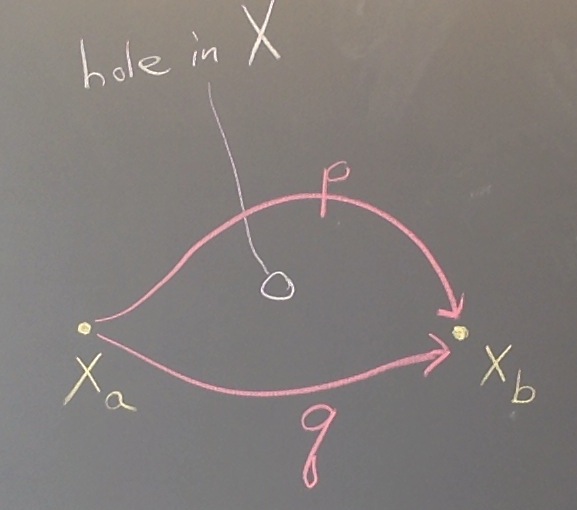 hole in X
p
x_a
x_b
q